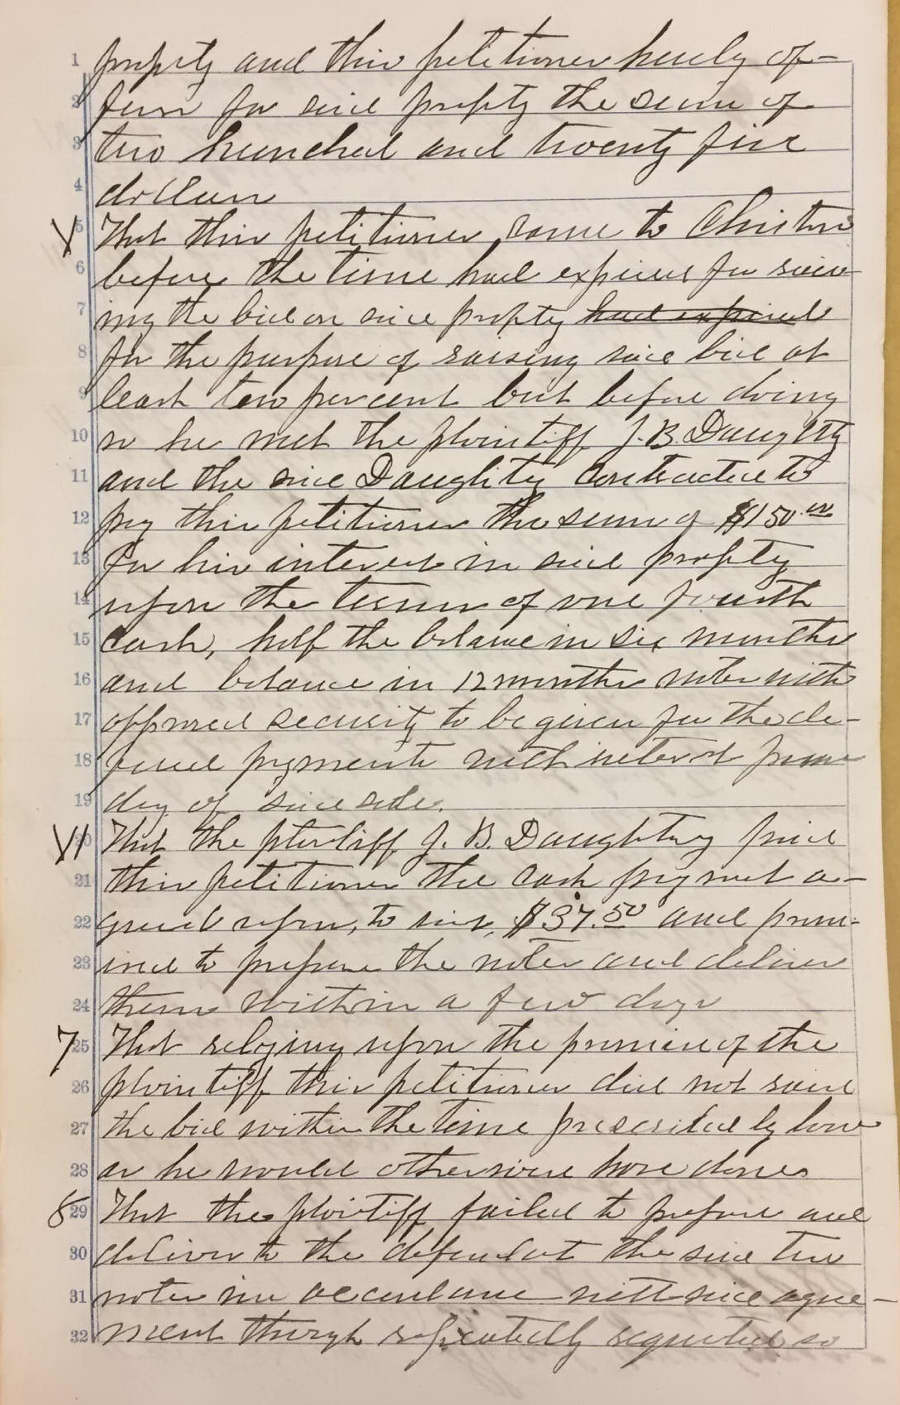 1 property and this petitioner hereby of-
2 fers for said property the sum of
3 two hundred and twenty five
4 dollars
V 5 That this petitioner came to Charleston
6 before the time had expired for raise
7 ing the bid on said property had expired
8 for the purpose of raising said bid at
9 least ten per cent but before doing
10 so he met the plaintiff J. B. Daughtry
11 and the said Daughtry contracted to
12 pay this petitioner the sum of $150.00
13 for his interest in said property
14 upon the terms of one fourth
15 cash, half the balance in six months
16 and balance in 12 months notes with
17 approved security to be given for the de-
18 fered payments with interest from
19 day of said sale.
VI 20 That the plaintiff J. B. Daughtry paid
21 this petitioner the cash payment a-
22 greed upon, to wit, $37.50 and prom-
23 ised to prepare the notes and deliver
24 them within a few days
7 25 That relying upon the promise of the
26 plaintiff this petitioner did not raise
27 the bid within the time prescribed by law
28 as he would otherwise have done.
8 29 That the plaintiff failed to prepare and
30 deliver to the defendant the said two
31 notes in accordance with said agree-
32 ment though repeatedly requested so